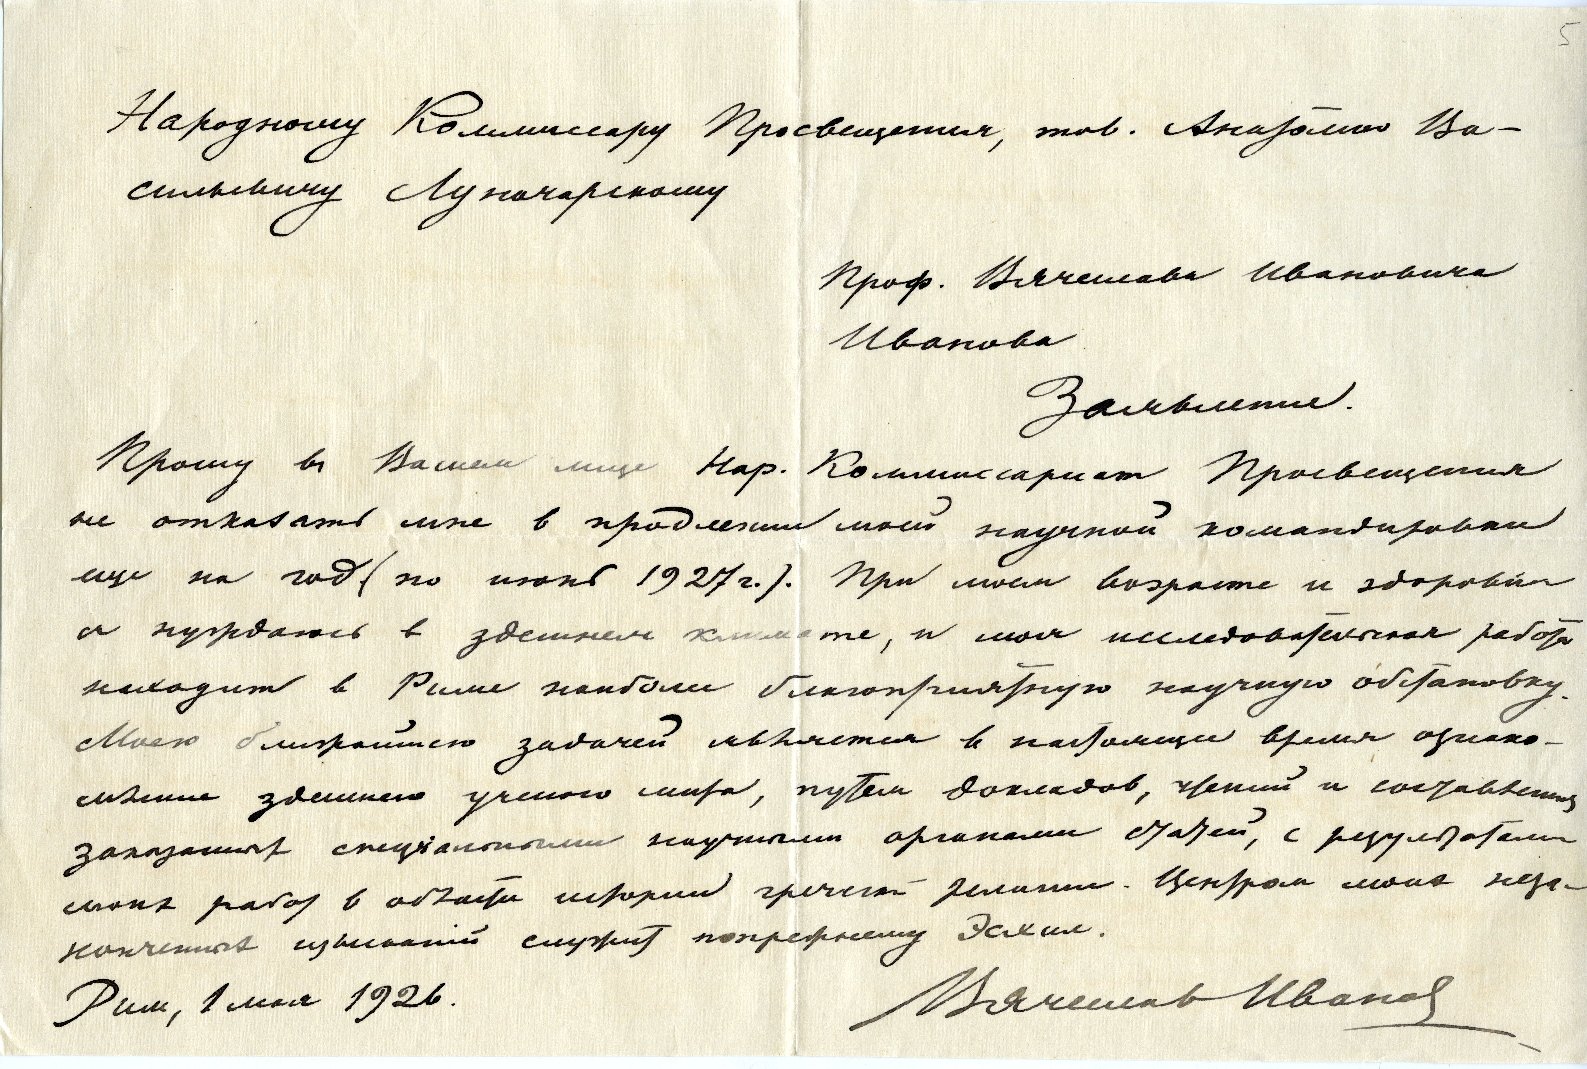 5
Народному Комиссару Просвещения, тов. Анатолию Ва-
сильевичу Луначарскому
Проф. Вячеслава Ивановича
Иванова
Заявление.
Прошу в Вашем лице Нар. Коммиссариат Просвещения
не отказать мне в продлении моей научной командировки
еще на год (по июнь 1927 г.). При моем возрасте и здоровьи
я нуждаюсь в здешнем климате, и моя исследовательская работа
находит в Риме наиболее благоприятную научную обстановку.
Моею ближайшею задачей является в настоящее время ознако-
мление здешнего ученого мира, путем докладов, чтений и составления
заказанных специальными научными органами статей, с результатами
моих работ в области истории греческой религии. Центром моих неза-
конченных изысканий служит попрежнему Эсхил.
Рим, 1 мая 1926.
Вячеслав Иванов